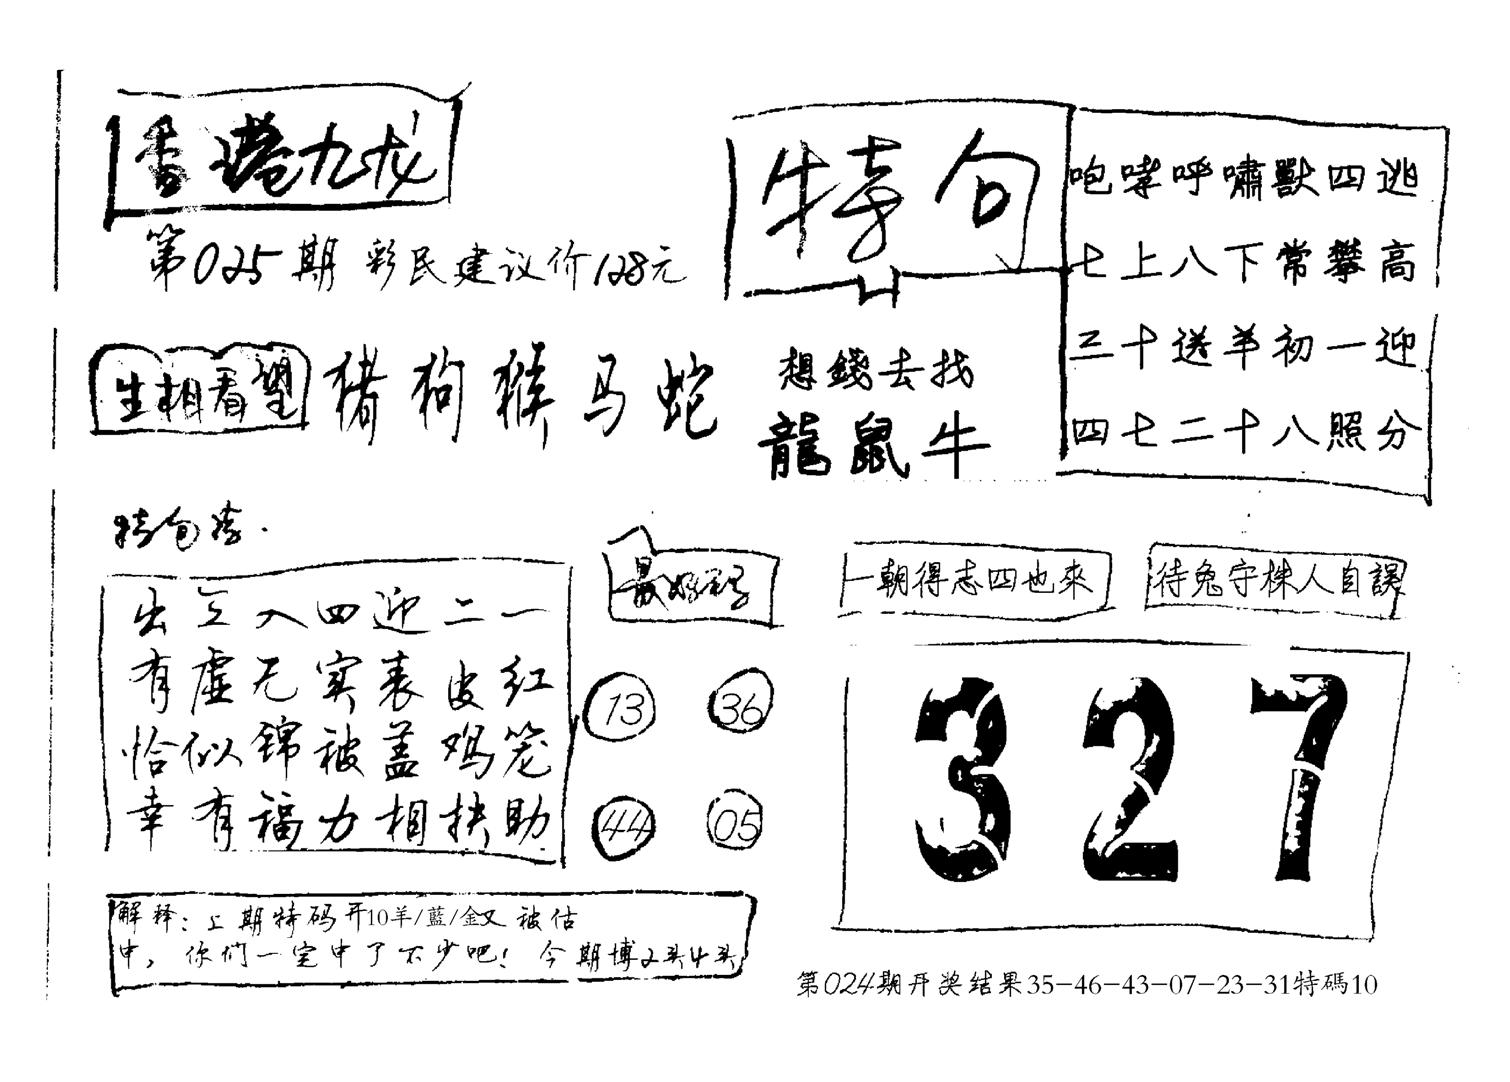 香港九龙
第025期 彩民建议价128元
生相看望 猪狗猴马蛇
特句
咆哮呼嘯獸四逃
七上八下常攀高
三十送羊初一迎
四七二十八照分
想錢去找
龍鼠牛
特句诗.
出五入四迎二一
有虚无实表皮红
恰似锦被盖鸡笼
幸有福力相扶助
最好码
13 36
44 05
一朝得志四也來
待兔守株人自誤
327
解释:上期特码开10羊/藍/金又被估
中,你们一定中了不少吧!今期博2头4头
第024期开奖结果35-46-43-07-23-31特碼10